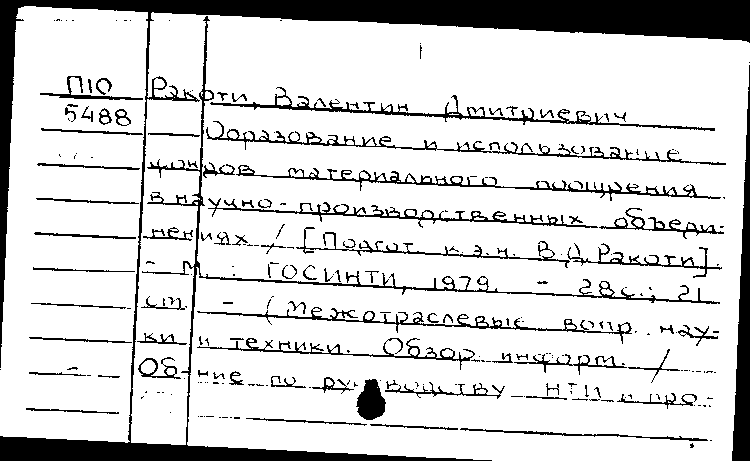 П10 Ракоти, Валентин Дмитриевич
5488 Образование и использование
фондов материального поощрения
в научно-производственных объеди-
нениях / [Подгот. к.э.н. В.Д. Ракоти].
- М. : ГОСИНТИ, 1979. - 28 с.; 21
см. - (Межотраслевые вопр. нау-
ки и техники. Обзор. информ. /
Об-ние по руководству НТИ и про-